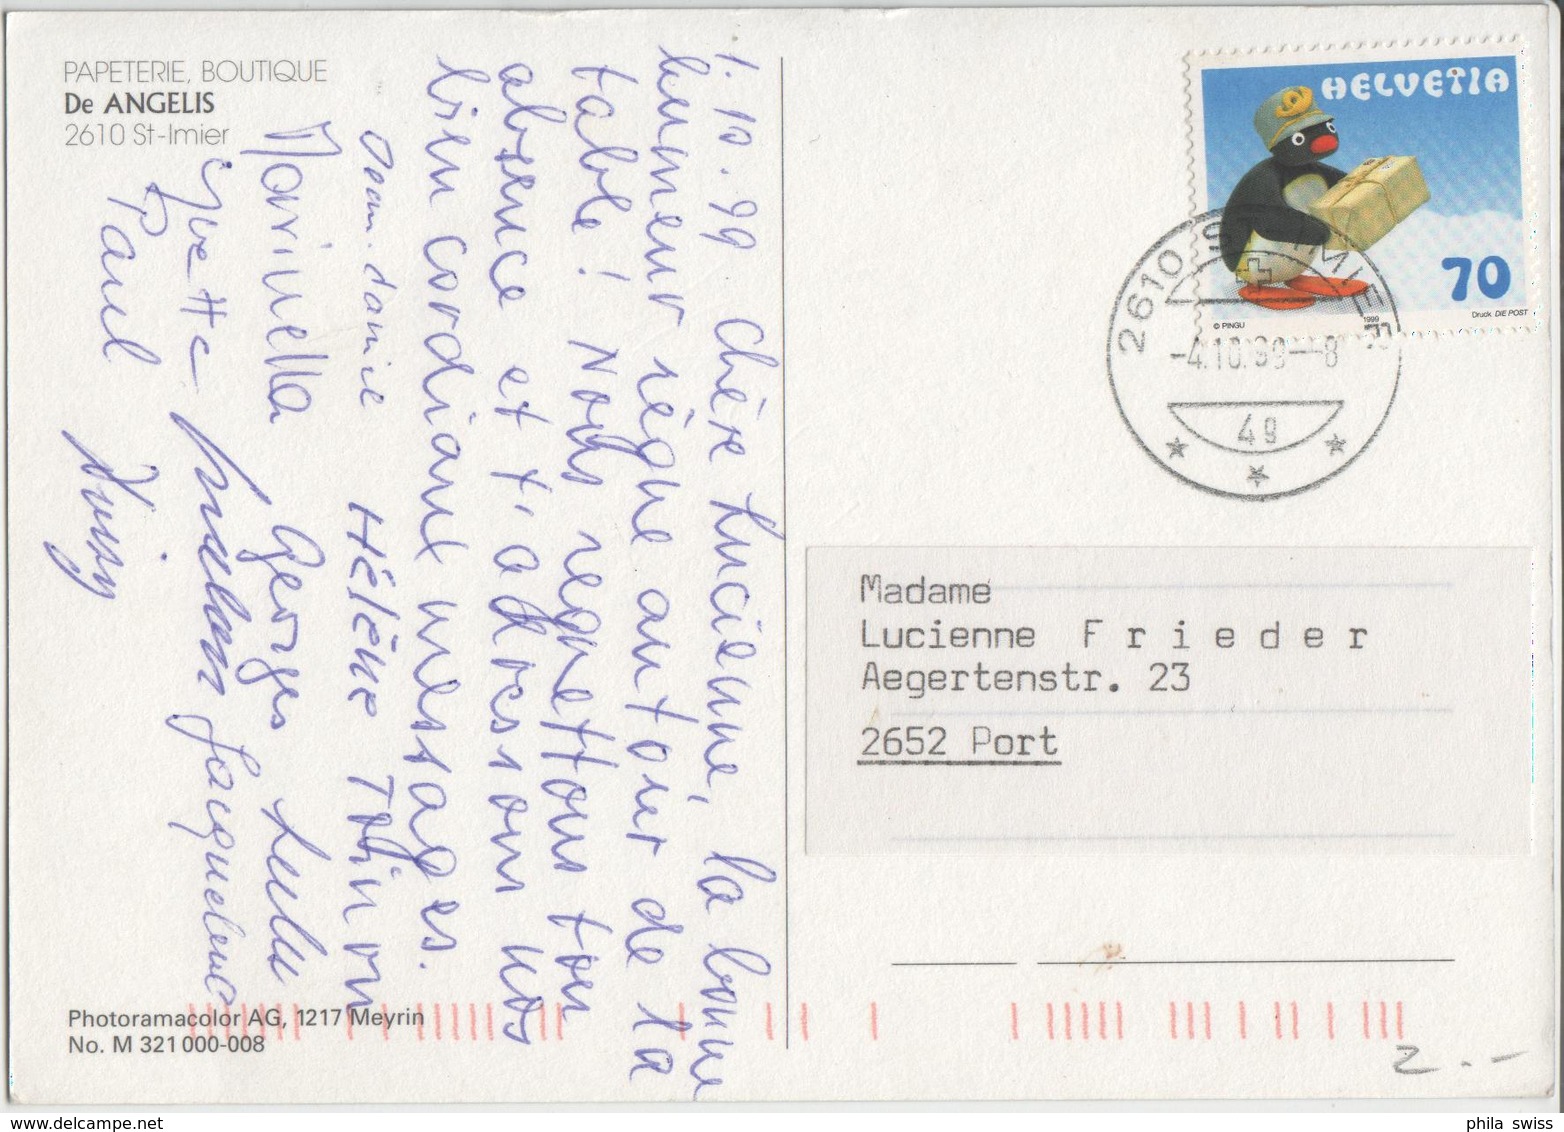 PAPETERIE, BOUTIQUE
De ANGELIS
2610 St-Imier
1.10.99 Chère Lucienne, la bonne
humeur règne autour de la
table! Nous regrettons ton
absence et t'adressons nos
bien cordiaux messages.
Jean-Daniel Hélène Tolin
Marinella Georges Lulu
Yvette Jacqueline
Paul
HELVETIA
70
© PINGU
1999
Druck DIE POST
2610 ST-IMIER
-4.10.99--8
49
Madame
Lucienne F r i e d e r
Aegertenstr. 23
2652 Port
Photoramacolor AG, 1217 Meyrin
No. M 321 000-008
2.-
phila swiss